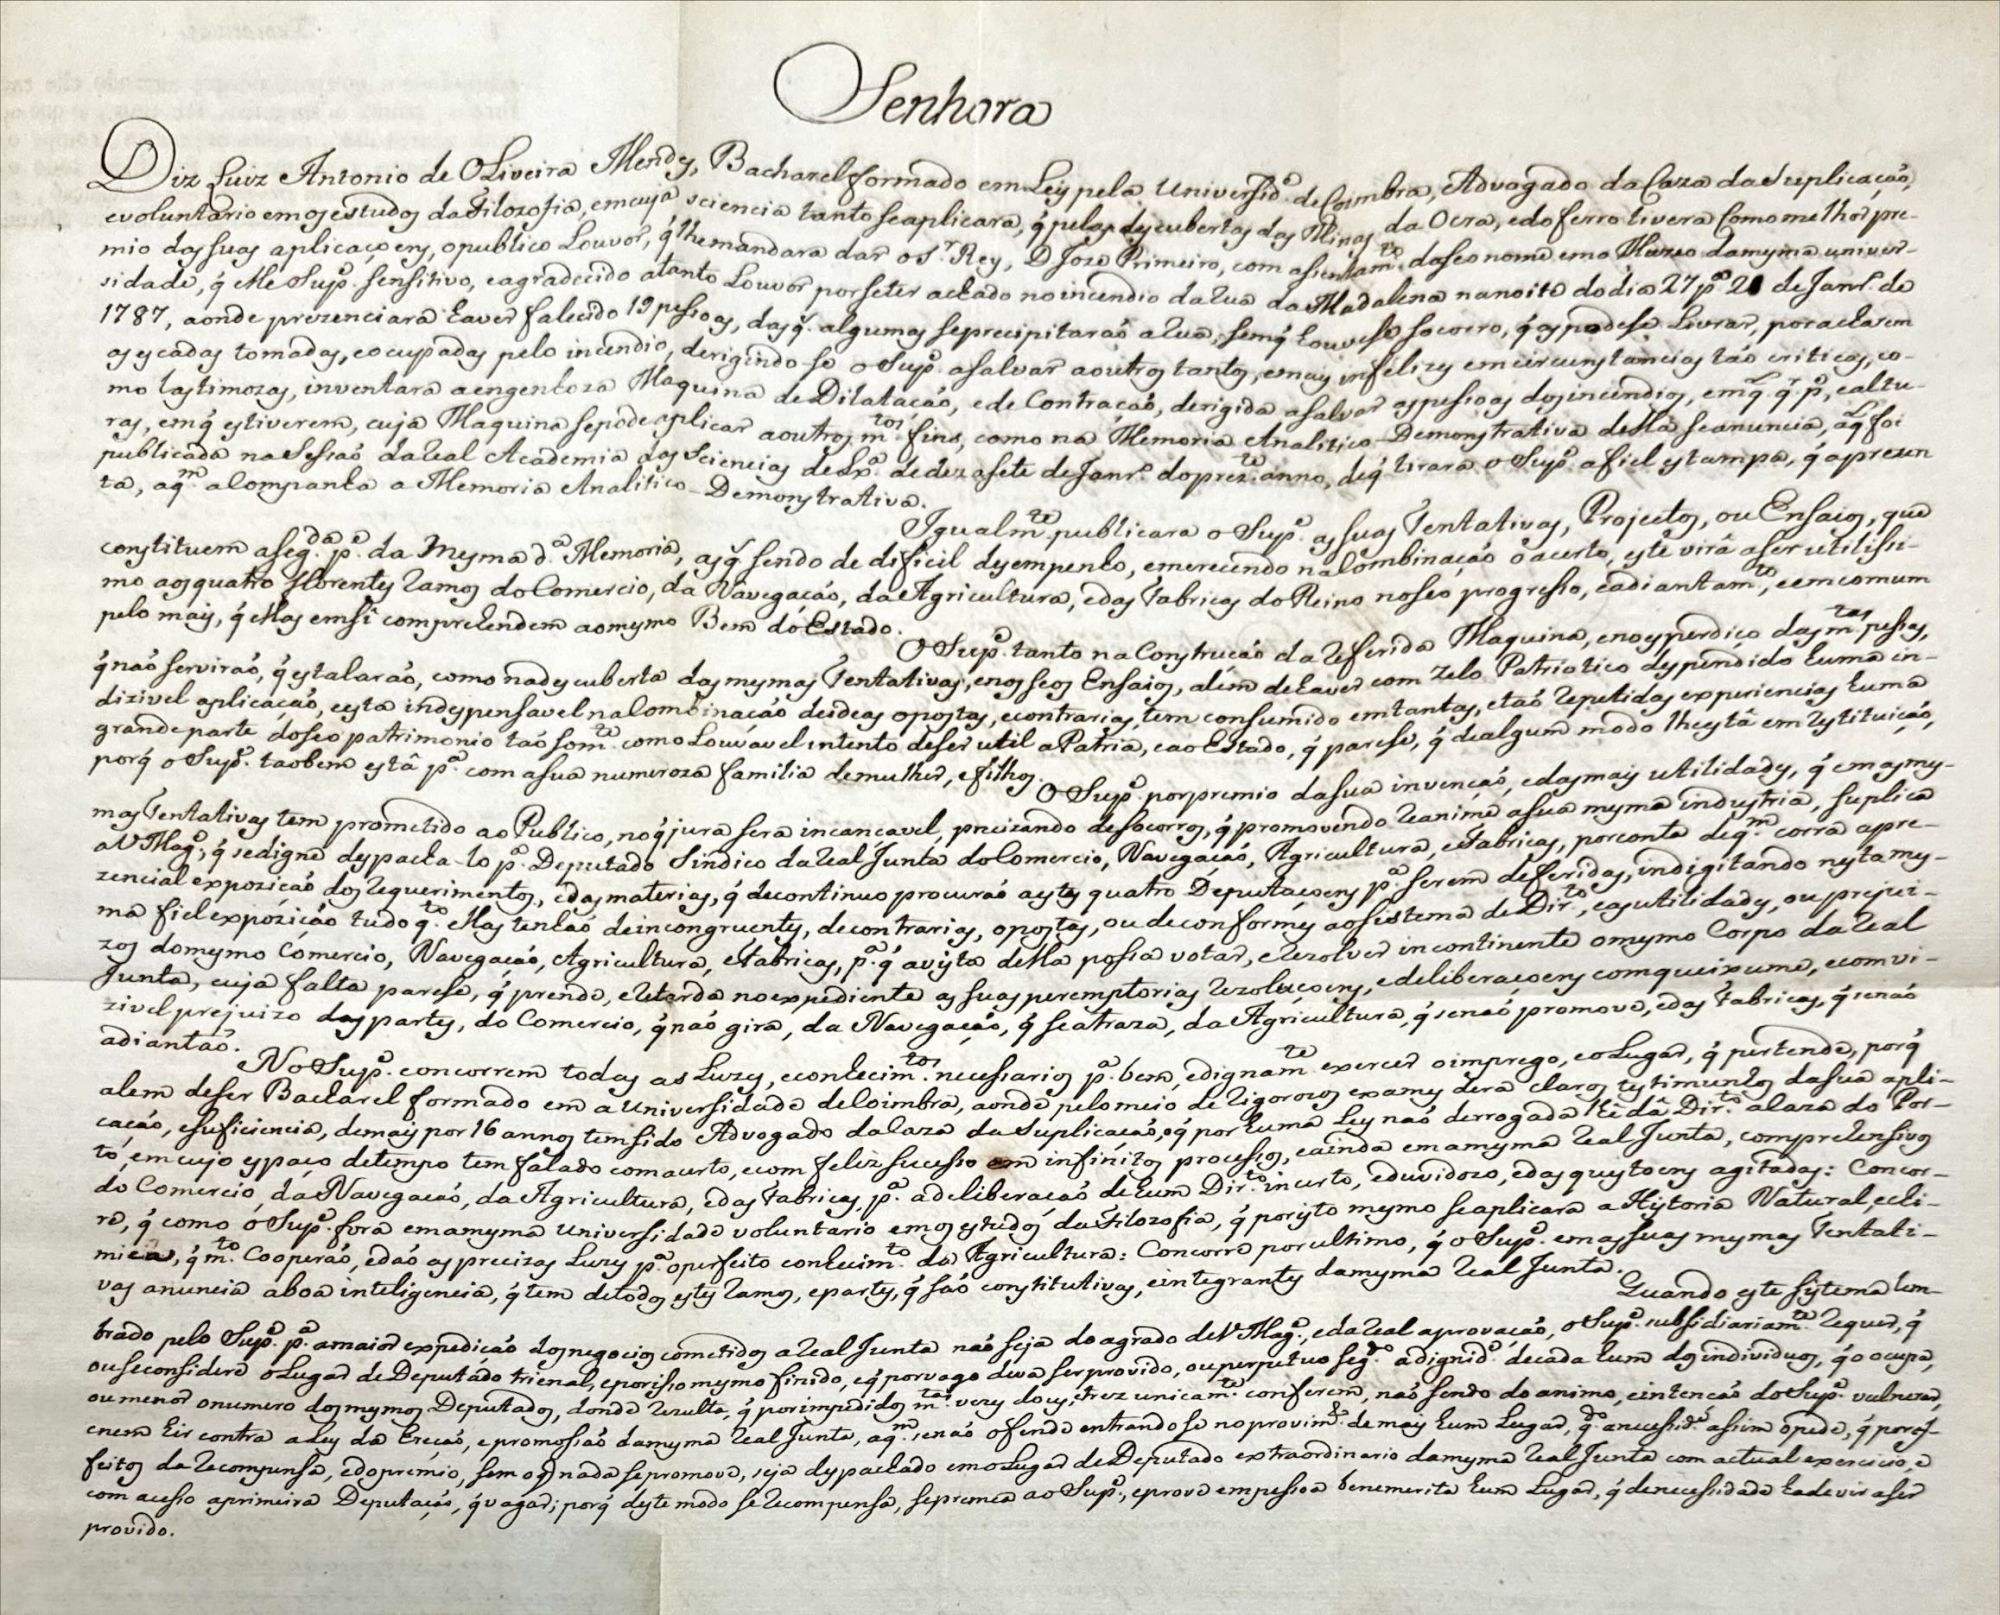 Senhora
Diz Luiz Antonio de Oliveira Mendes, Bacharel formado em Leys pela Universid.e de Coimbra, Advogado da Caza da Suplicação,
e voluntario em os estudos da Filozofia, em cuja sciencia tanto se aplicara, q̃ pelas descubertas das Minas da Ocra, e do ferro tivera Como melhor pre-
mio das suas aplicaçoens, o publico Louvor, q̃ lhe mandara dar o S.r Rey, D Joze Primeiro, com asentam.to do seo nome em o Muzeo da mesma univer-
sidade, q̃ elle Sup.e sensitivo, e agradecido a tanto Louvor por se ter achado no incendio da rua da Madalena na noite do dia 27 p.a 28 de Janr.o de
1787, aonde prezenciara haver falecido 19 pessoas, das q.s algumas se precipitaraõ a rua, sem q̃ houvese socorro, q̃ as podese Livrar, por acharem
as escadas tomadas, e ocupadas pelo incendio, derigindo-se o Sup.e a salvar a outros tantos, e mais infelizes em circunstancias taõ criticas, co-
mo lastimozas, inventara a engenhoza Maquina de Dilatação, e de Contração, derigida a salvar as pessoas dos incendios, em q.l q.r p.e, e altu-
ras, em q̃ estiverem, cuja Maquina se pode aplicar a outros m.tos fins, como na Memoria Analitico-Demonstrativa della se anuncia, a q.l foi
publicada na Sessaõ da Real Academia das Sciencias de Lx.a de dezasete de Janr.o do prez.te anno, de q̃ tirara o Sup.e a fiel estampa, q̃ aprezen
ta, a q.m acompanha a Memoria Analitico-Demonstrativa.
Igualm.te publicara o Sup.e as suas Tentativas, Projectos, ou Ensaios, que
constituem a seg.da p.e da mesma d.a Memoria, as q.s sendo de dificil desempenho, e merecendo na Combinação o acerto, este virá a ser utilissi-
mo aos quatro florentes ramos do Comercio, da Navegação, da Agricultura, e das Fabricas do Reino no seo progresso, e adiantam.to, e em comum
pelo mais, q̃ ellas em si comprehendem ao mesmo Bem do Estado.
O Sup.e tanto na Construção da referida Maquina, e no esperdiço das m.tas pessas,
q̃ naõ serviraõ, q̃ estalaraõ, como na descuberta das mesmas Tentativas, e nos seos Ensaios, além de haver com zelo Patriotico despendido huma in-
dizivel aplicação, e esta indespensavel na Combinação de ideas opostas, e contrarias, tem consumido em tantas, e taõ reputidas experiencias huma
grande parte do seo patrimonio taõ som.te com o Louvavel intento de ser util a Patria, e ao Estado, q̃ parese, q̃ de algum modo lhe está em restituição,
porq̃ o Sup.e taobem está p.a com a sua numeroza familia de mulher, e filhos.
O Sup.e por premio da sua invenção, e das mais utilidades, q̃ em as mes-
mas Tentativas tem prometido ao Publico, no q̃ jura sera incançavel, precizando de socorros, q̃ promovendo reanime a sua mesma industria, suplica
a V Mag.e, q̃ se digne despacha-lo p.a Deputado Sindico da Real Junta do Comercio, Navegação, Agricultura, e Fabricas, por conta de q.m corra a pre-
zencial expozição dos requerimentos, e das materias, q̃ de continuo procuraõ a estas quatro Deputaçoens p.a serem deferidas, indigitando nesta mes-
ma fiel expozição tudo q.to ellas tenhaõ de incongruentes, de contrarias, opostas, ou de conformes ao sistema de Dir.to, e as utilidades, ou prejui-
zos do mesmo Comercio, Navegação, Agricultura, e Fabricas, p.a q̃ a vista della possa votar, e rezolver incontinente o mesmo Corpo da Real
Junta, cuja falta parese, q̃ prende, e retarda no expediente as suas peremptorias rezoluçoens, e deliberaçoens com queixume, e com vi-
zivel prejuizo das partes, do Comercio, q̃ naõ gira, da Navegação, q̃ se atraza, da Agricultura, q̃ se naõ promove, e das Fabricas, q̃ se naõ
adiantaõ.
No Sup.e concorrem todas as Luzes, e conhecim.tos necessarios p.a bem, e dignam.te exercer o imprego, e o Lugar, q̃ pertende, porq̃
alem de ser Bacharel formado em a Universidade de Coimbra, aonde pelo meio de rigorozos exames dera claros testimunhos da sua apli-
cação, e suficiencia, de mais por 16 annos tem sido Advogado da Caza da Suplicação, o q̃ por huma Ley naõ derrogada lhe dá Dir.to a Caza do Por-
to, em cujo espaço de tempo tem falado com acerto, e com feliz sucesso em infinitos processos, e ainda em a mesma Real Junta, comprehensivos
do Comercio, da Navegação, da Agricultura, e das Fabricas, p.a a deliberação de hum Dir.to incerto, e duvidozo, e das questoens agitadas: Concor-
re, q̃ como o Sup.e fora em a mesma Universidade voluntario em os estudos da Filozofia, q̃ por isto mesmo se aplicara a Historia Natural, e chi-
mica, q̃ m.to Cooperaõ, e daõ as precizas Luzes p.a o perfeito conhecim.to da Agricultura: Concorre por ultimo, q̃ o Sup.e em as suas mesmas Tentati-
vas anuncia a boa inteligencia, q̃ tem de todos estes ramos, e partes, q̃ saõ constitutivas, e integrantes da mesma Real Junta.
Quando este sistema lem-
brado pelo Sup.e p.a a maior expedição dos negocios cometidos a Real Junta naõ seja do agrado de V Mag.e, e da Real aprovação, o Sup.e subsidiariam.te requer, q̃
ou se considere o Lugar de Deputado trienal, e por isso mesmo findo, e q̃ por vago deva ser provido, ou perpetuo seg.do a dignid.e de cada hum dos individuos, q̃ o ocupa,
ou menor o numero dos mesmos Deputados, donde rezulta, q̃ por impedidos m.tas vezes dous, e trez unicam.te conferem, naõ sendo do animo, e intenção do Sup.e vulnerar,
e nem hir contra a Ley da Ereçaõ, e promossaõ da mesma Real Junta, a q.m se naõ ofende entrando se no provim.to de mais hum Lugar, q.do a necessid.e assim o pede, q̃ por ef-
feitos da recompensa, e do premio, sem os q̃ nada se promove, seja despachado em o Lugar de Deputado extraordinario da mesma Real Junta com actual exercicio, e
com acesso a primeira Deputação, q̃ vagar; porq̃ deste modo se recompensa, se premea ao Sup.e, e prove em pessoa benemerita hum Lugar, q̃ de necessidade hade vir a ser
provido.